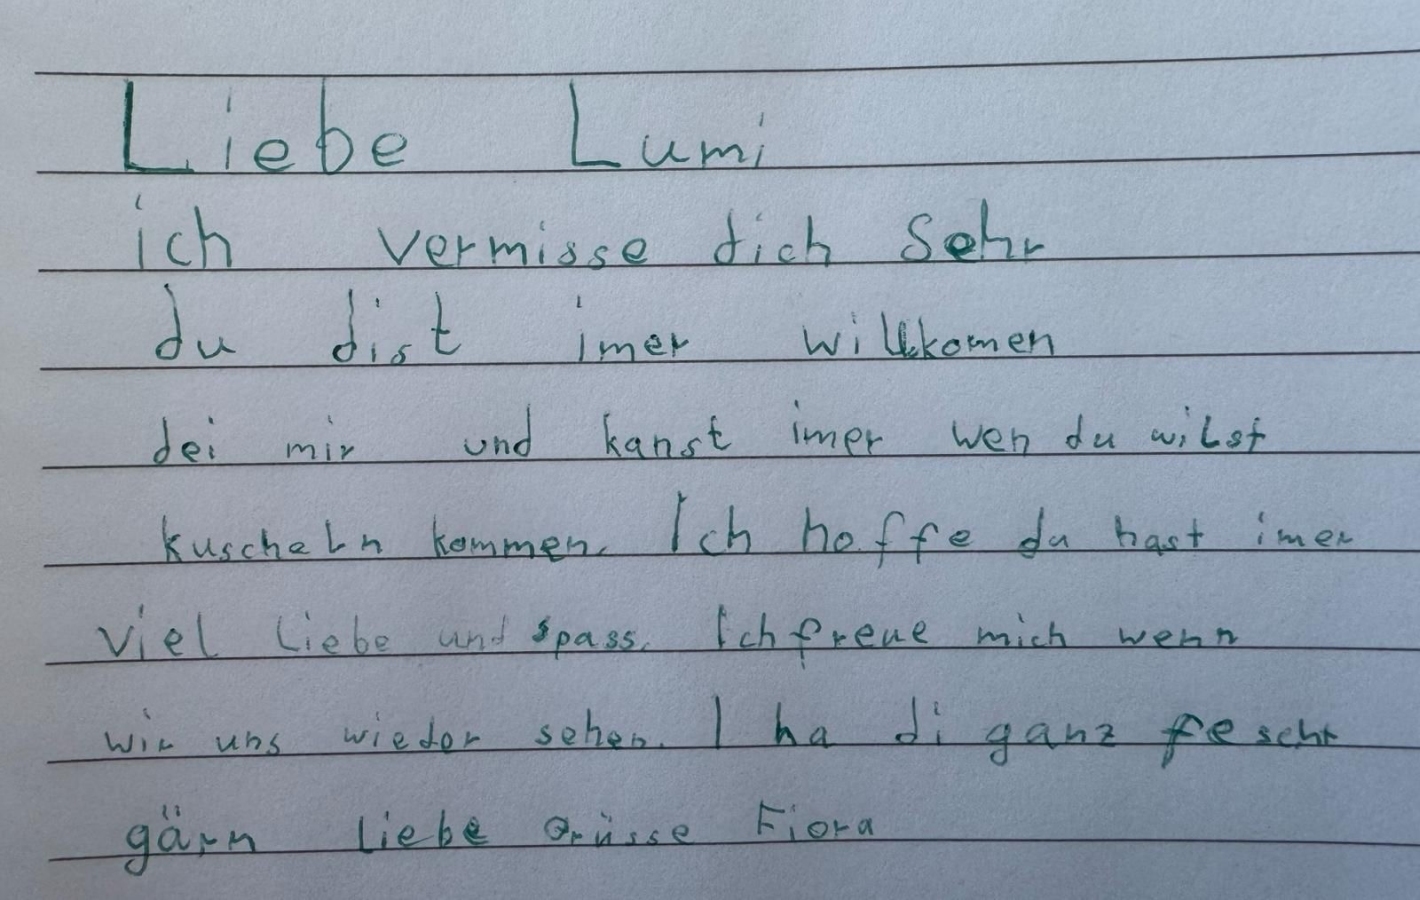 Liebe Lumi
ich vermisse dich Sehr
du dist imer willkomen
dei mir und kanst imer wen du wilst
kuscheln kommen. Ich hoffe du hast imer
viel Liebe und spass. Ich freue mich wenn
wir uns wieder sehen. I ha di ganz fescht
gärn Liebe Grüsse Fiora